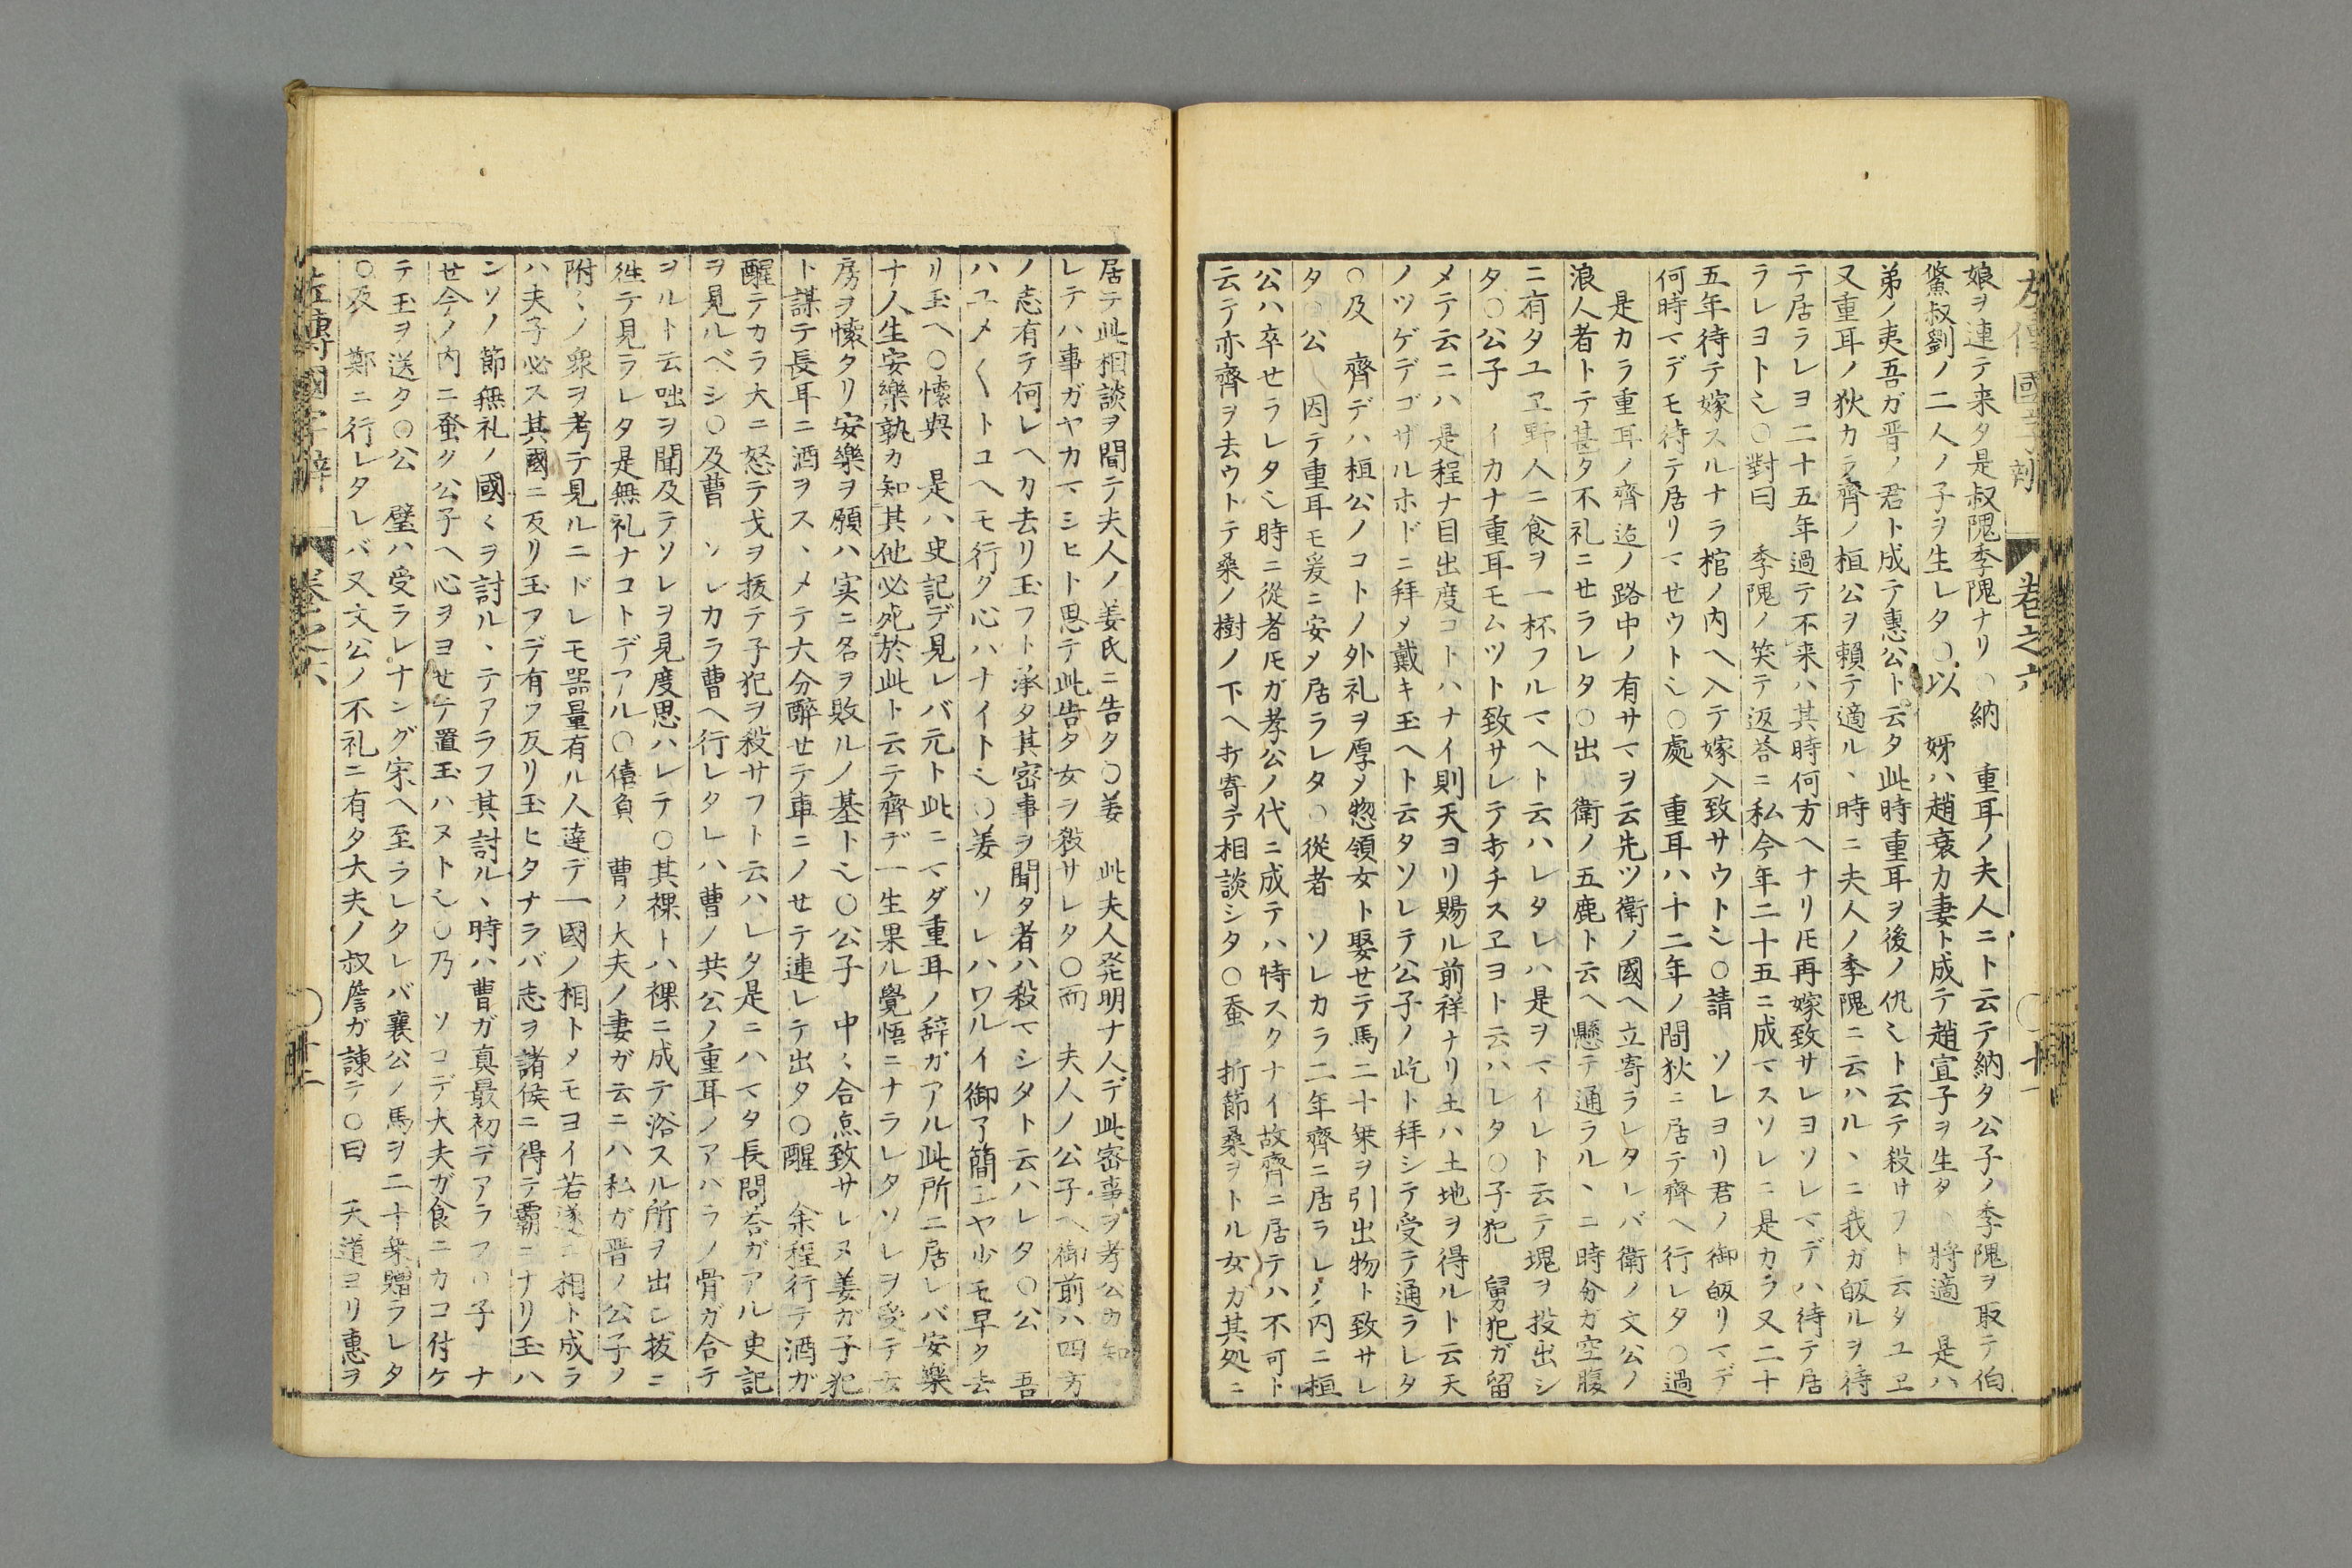 左傳國字辯 巻之六
娘ヲ連テ来タ是叔隗季隗ナリ○納 重耳ノ夫人ニト云テ納タ公子ノ季隗ヲ取テ伯
鯈叔劉ノ二人ノ子ヲ生レタ○以 妳ハ趙衰カ妻ト成テ趙宣子ヲ生タ○將適 是ハ
弟ノ夷吾ガ晋ノ君ト成テ惠公ト云タ此時重耳ヲ後ノ仇乄ト云テ殺サフト云タユヱ
又重耳ノ狄カラ齊ノ桓公ヲ頼テ適ル、時ニ夫人ノ季隗ニ云ハル、ニ我ガ皈ルヲ待
テ居ラレヨ二十五年過テ不来ハ其時何方ヘナリ𪜈再嫁致サレヨソレマデハ待テ居
ラレヨト也○對曰 季隗ノ笑テ返荅ニ私今年二十五ニ成マスソレニ是カラ又二十
五年待テ嫁スルナラ棺ノ内ヘ入テ嫁入致サウト也○請 ソレヨリ君ノ御皈リマデ
何時マデモ待テ居リマせウト也○處 重耳ハ十二年ノ間狄ニ居テ齊ヘ行レタ○過
是カラ重耳ノ齊迠ノ路中ノ有サマヲ云先ツ衛ノ國ヘ立寄ラレタレバ衛ノ文公ノ
浪人者トテ甚タ不礼ニせラレタ○出 衛ノ五鹿ト云ヘ懸テ通ラル、ニ時分ガ空腹
ニ有タユヱ野人ニ食ヲ一杯フルマヘト云ハレタレハ是ヲマイレト云テ塊ヲ投出シ
タ○公子 イカナ重耳モムツト致サレテ𢪸チスヱヨト云ハレタ○子犯 舅犯ガ留
メテ云ニハ是程ナ目出度コトハナイ則天ヨリ賜ル前祥ナリ土ハ土地ヲ得ルト云天
ノツゲデゴザルホドニ拜メ戴キ玉ヘト云タソレテ公子ノ屹ト拜シテ受テ通ラレタ
○及 齊デハ桓公ノコトノ外礼ヲ厚メ惣領女ト娶せテ馬二十乗ヲ引出物ト致サレ
タ○公 因テ重耳モ爰ニ安メ居ラレタ○從者 ソレカラ二年齊ニ居ラレノ内ニ桓
公ハ卒せラレタ也時ニ從者𪜈ガ孝公ノ代ニ成テハ恃スクナイ故齊ニ居テハ不可ト
云テ亦齊ヲ去ウトテ桑ノ樹ノ下ヘ𢪸寄テ相談シタ○蚕 折節桑ヲトル女カ其処ニ
居テ此相談ヲ聞テ夫人ノ姜氏ニ告タ○姜 此夫人発明ナ人デ此密事ヲ孝公カ知
レテハ事ガヤカマシヒト思テ此告タ女ヲ殺サレタ○而 夫人ノ公子ヘ御前ハ四方
ノ志有テ何レヘカ去リ玉フト承タ其密事ヲ聞タ者ハ殺マシタト云ハレタ○公 吾
ハユメ〱トコヘモ行ク心ハナイト也○姜 ソレハワルイ御了簡ニヤ少モ早ク去
リ玉ヘ○懐與 是ハ史記デ見レバ元ト此ニマダ重耳ノ辞ガアル此所ニ居レバ安樂
ナ人生安樂孰カ知其他必死於此ト云テ齊デ一生果ル覺悟ニナラレタソレヲ受テ女
房ヲ懐タリ安樂ヲ願ハ実ニ名ヲ敗ルノ基ト也○公子 中々合点致サレヌ姜ガ子犯
ト謀テ長耳ニ酒ヲス、メテ大分醉せテ車ニノせテ連レテ出タ○醒 余程行テ酒ガ
醒テカラ大ニ怒テ戈ヲ抜テ子犯ヲ殺サフト云ハレタ是ニハマタ長問荅ガアル史記
ヲ見ルベシ○及曹 ソレカラ曹ヘ行レタレハ曹ノ共公ノ重耳ノアハラノ骨ガ合テ
ヲルト云咄ヲ聞及テソレヲ見度思ハレテ○其裸トハ裸ニ成テ浴スル所ヲ出シ抜ニ
徃テ見ラレタ是無礼ナコトデアル○僖負 曹ノ大夫ノ妻ガ云ニハ私ガ晋ノ公子ノ
附々ノ衆ヲ考テ見ルニドレモ器量有ル人達デ一國ノ相トメモヨイ若遂ニ相ト成ラ
ハ夫子必ス其國ニ反リ玉フデ有フ反リ玉ヒタナラバ志ヲ諸侯ニ得テ霸ニナリ玉ハ
ンソノ節無礼ノ國〻ヲ討ル、テアラフ其討ル、時ハ曹ガ真最初デアラフ○子 ナ
せ今ノ内ニ蚤ク公子ヘ心ヲヨせテ置玉ハヌト也○乃 ソコデ大夫ガ食ニカコ付ケ
テ玉ヲ送タ○公 璧ハ受ラレナンダ宋ヘ至ラレタレバ襄公ノ馬ヲ二十乗贈ラレタ
○及 鄭ニ行レタレバ又文公ノ不礼ニ有タ大夫ノ叔詹ガ諫テ○曰 天道ヨリ惠ヲ
左傳國字辯 巻之六